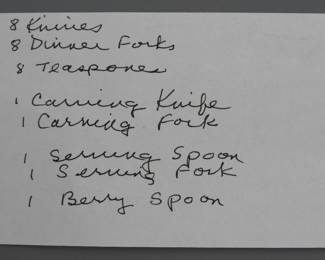 8 Knives
8 Dinner Forks
8 Teaspones
1 Carving Knife
1 Carving Fork
1 Serving Spoon
1 Serving Fork
1 Berry Spoon